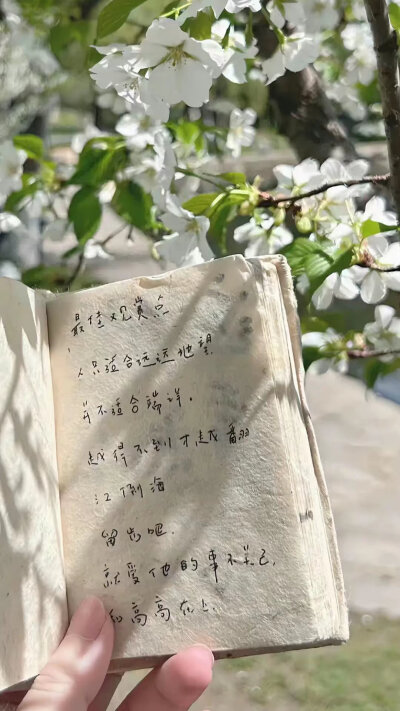 最佳观赏点
人只适合远远地望
并不适合端详。
越得不到才越翻
江倒海
留步吧.
就爱他的事不关己,
和高高在上.